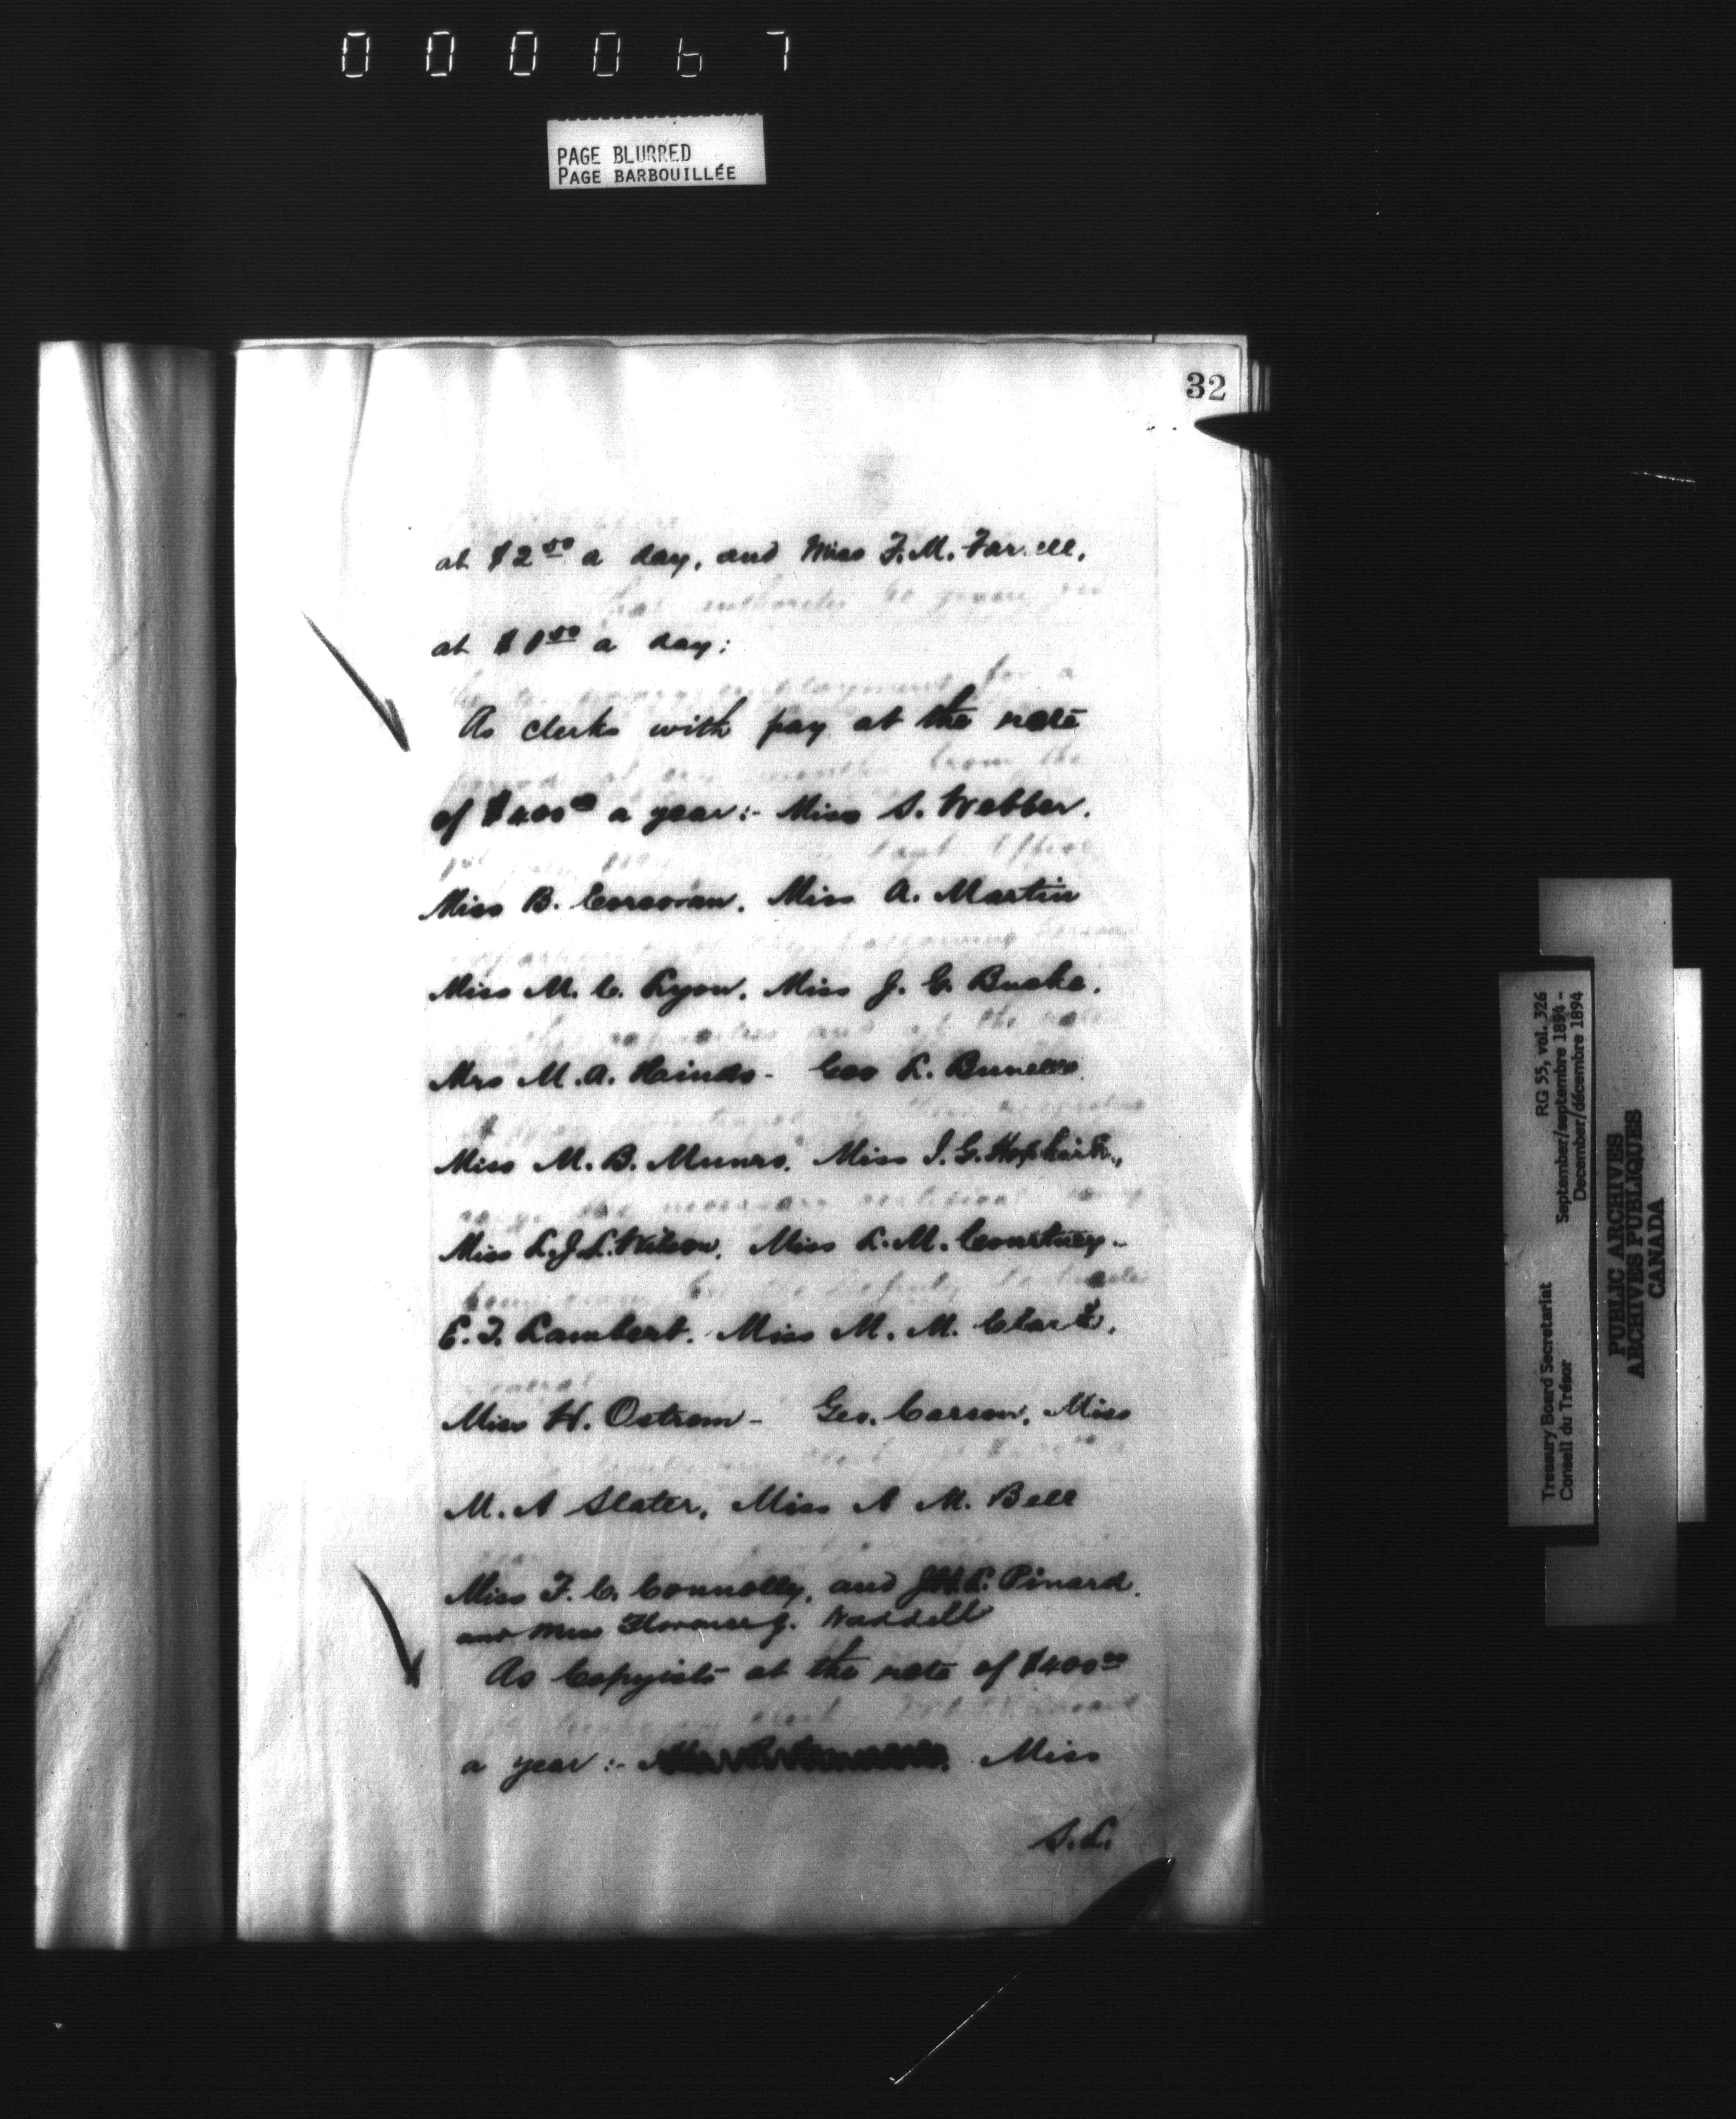 000067
PAGE BLURRED
PAGE BARBOUILLÉE
32
at $2 50 a day, and Miss F. M. Farrell,
at $1 50 a day;
As clerks with pay at the rate
of $400 00 a year:- Miss S. Webber.
Miss B. Corcoran, Miss A. Martin
Miss M. C. Lyon, Miss J. G. Burke.
Mrs M. A. Hainds - Geo L. Bunelle
Miss M. B. Munro, Miss I. G. Hopkirk,
Miss L. J. L. Wilson, Miss L. M. Courtney -
E. T. Lambert. Miss M. M. Clark,
Miss H. Ostrom - Geo. Carson, Miss
M. A Slater, Miss A M. Bell
Miss F. C. Connolly, and J. H. L. Pinard.
and Miss Florence J. Waddell
As Copyists at the rate of $400 00
a year:- Miss
S. L.
Treasury Board Secretariat RG 55, vol. 326
Conseil du Trésor September/septembre 1894 -
December/décembre 1894
PUBLIC ARCHIVES
ARCHIVES PUBLIQUES
CANADA